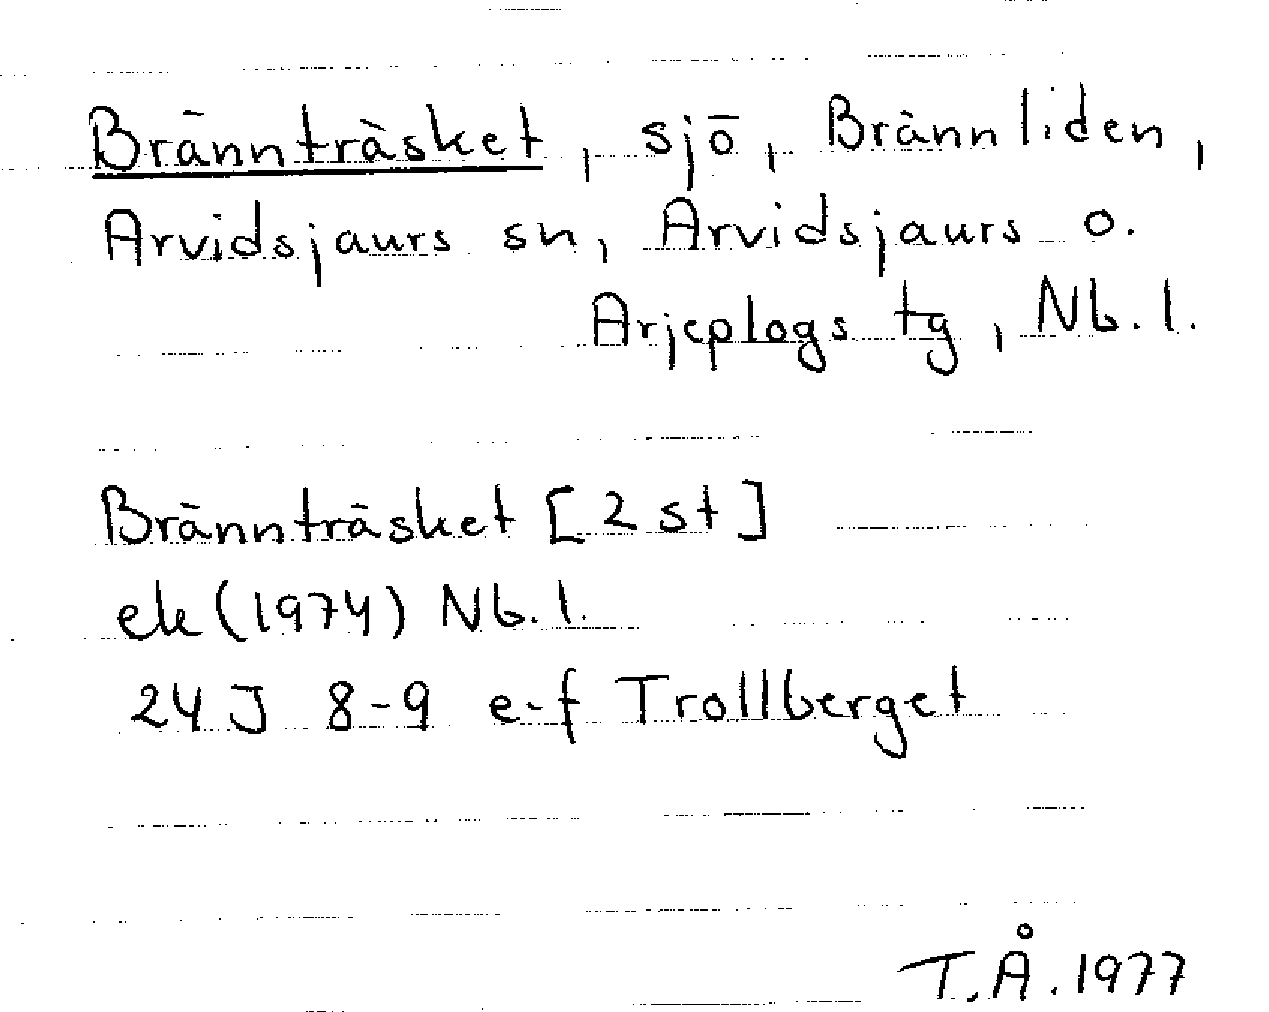 Brännträsket, sjö, Brännliden,
Arvidsjaurs sn, Arvidsjaurs o.
Arjeplogs tg, Nb. l.
Brännträsket [2 st]
ek (1974) Nb. l.
24 J 8-9 e-f Trollberget
T.Å. 1977